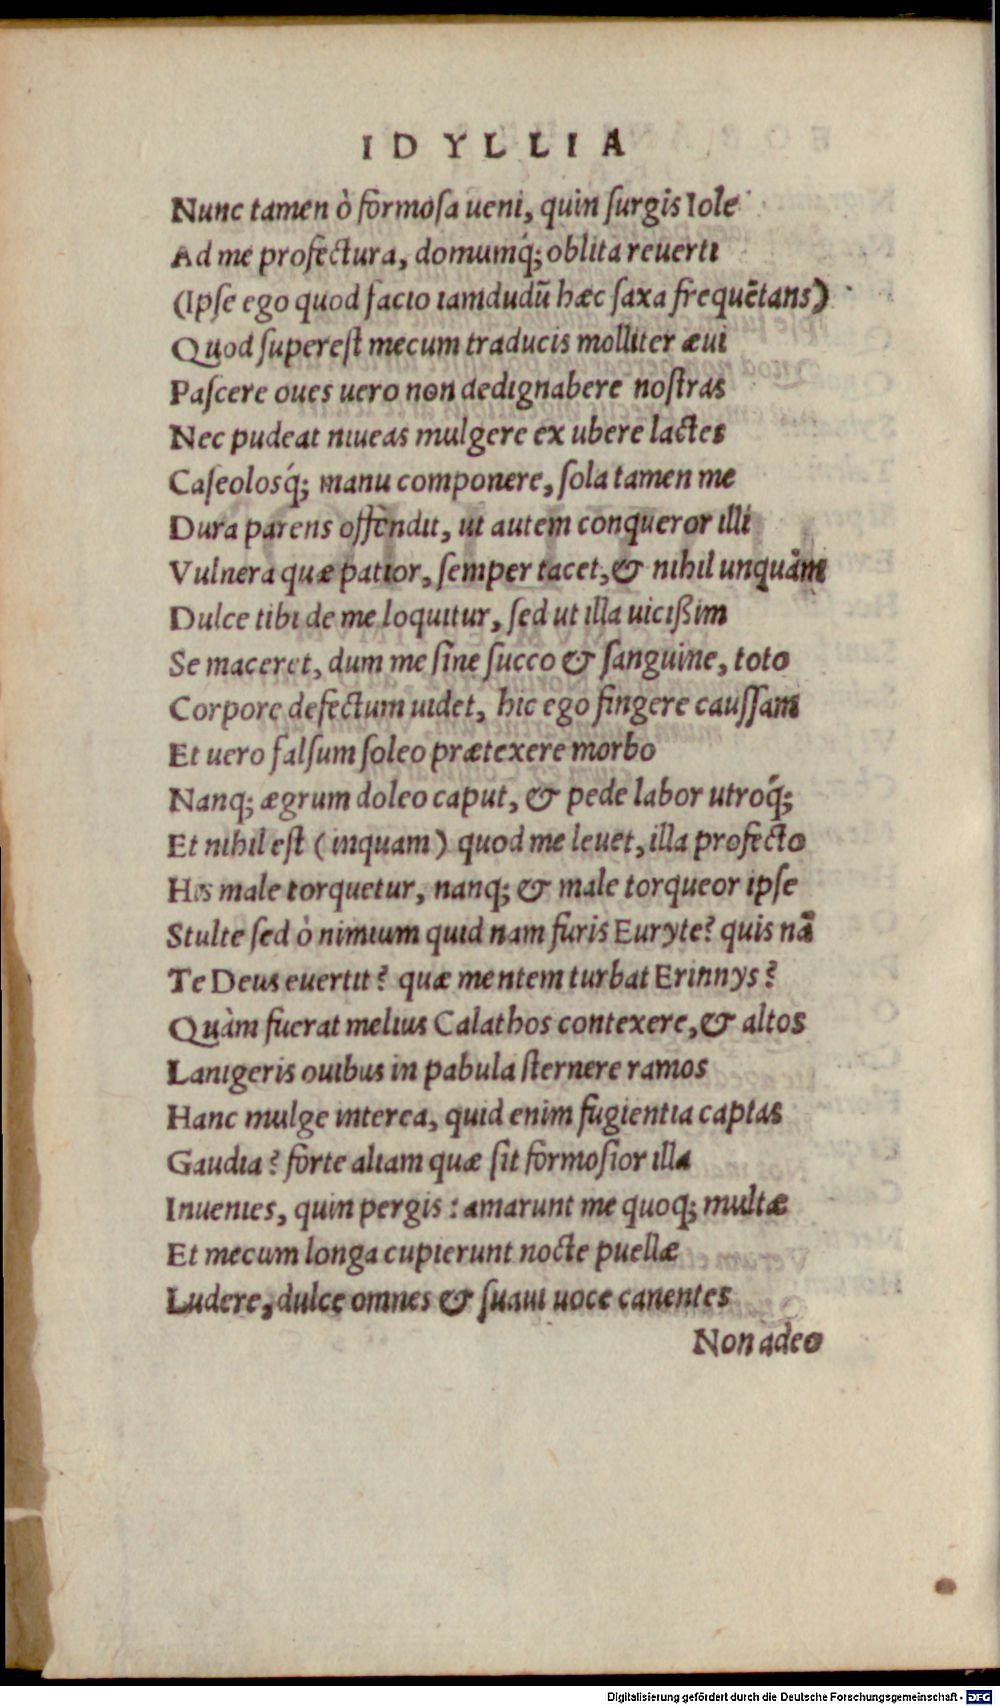 IDYLLIA
Nunc tamen ò formoſa ueni, quin ſurgis Iole
Ad me profectura, domumq́; oblita reuerti
(Ipſe ego quod facio iamdudū hæc ſaxa frequētans)
Quod ſupereſt mecum traducis molliter æui
Paſcere oues uero non dedignabere noſtras
Nec pudeat niueas mulgere ex ubere lactes
Caſeolosq́; manu componere, ſola tamen me
Dura parens offendit, ut autem conqueror illi
Vulnera quæ patior, ſemper tacet, & nihil unquàm
Dulce tibi de me loquitur, ſed ut illa uicißim
Se maceret, dum me ſine ſucco & ſanguine, toto
Corpore defectum uidet, hic ego fingere cauſſam
Et uero falſum ſoleo prætexere morbo
Nanq; ægrum doleo caput, & pede labor utroq́;
Et nihil eſt (inquam) quod me leuet, illa profecto
His male torquetur, nanq; & male torqueor ipſe
Stulte ſed ò nimium quid nam furis Euryte? quis nā
Te Deus euertit? quæ mentem turbat Erinnys?
Quàm fuerat melius Calathos contexere, & altos
Lanigeris ouibus in pabula ſternere ramos
Hanc mulge interea, quid enim fugientia captas
Gaudia? forte aliam quæ ſit formoſior illa
Inuenies, quin pergis: amarunt me quoq; multæ
Et mecum longa cupierunt nocte puellæ
Ludere, dulce omnes & ſuaui uoce canentes
Non adeo
Digitalisierung gefördert durch die Deutsche Forschungsgemeinschaft - DFG